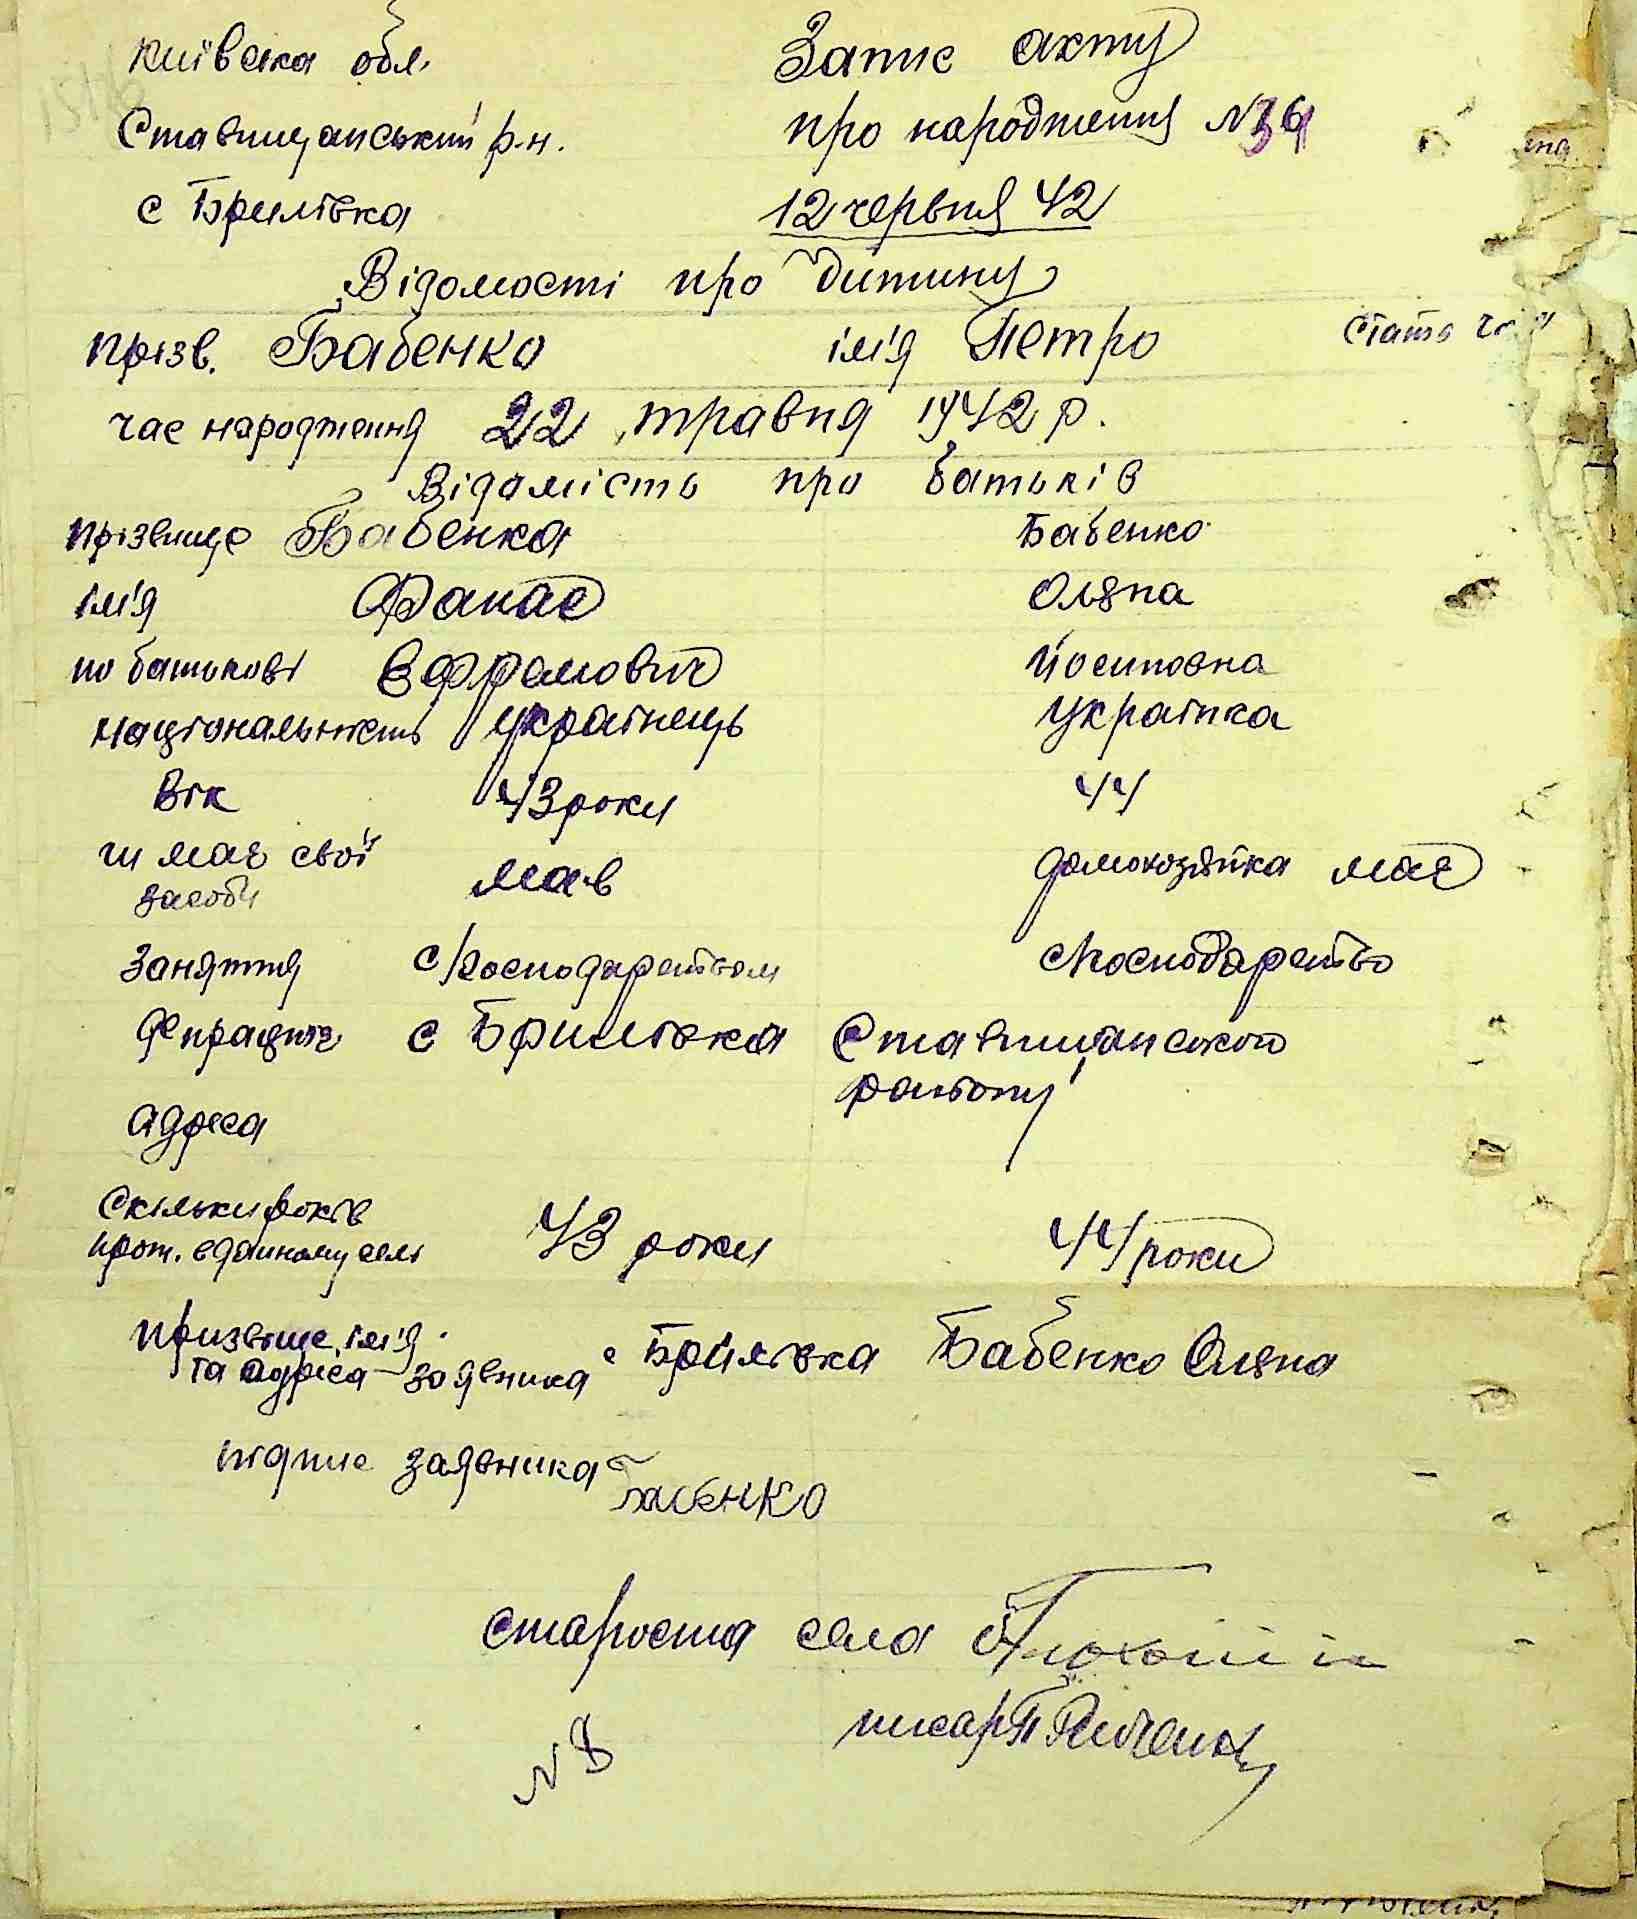 Київська обл. Запис акту
Ставищанський р-н. про народження №
с Брилівка 12 червня 42
Відомості про дитину
прізв. Бабенко ім'я Петро Стать
час народження 22 травня 1942 р.
Відамість про батьків
прізвище Бабенка Бабенко
ім'я Фанас Оляна
по батькові Єфремович Йосиповна
національність українець Українка
Вік 43 роки 44
чи має свої
засоби мав домохозяйка має
Заняття с/господарством с/господарство
де працює с Брилівка Ставищанського
району
адреса
Скільки років
прож. в даному селі 43 роки 44 роки
призвище, ім'я
та адреса заявника с Брилівка Бабенко Оляна
підпис заявника
Бабенко
староста села
писар
№ 8